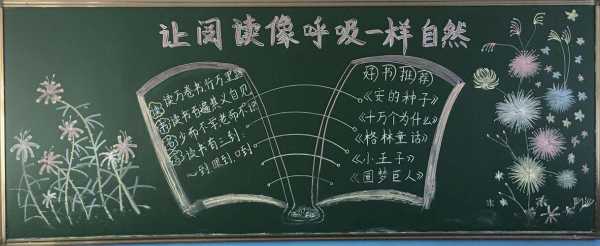 让阅读像呼吸一样自然
读万卷书行万里路
读书百遍其义自见
少而不学老而不识
读书有三到:
心到.眼到.口到
好书推荐
《安的种子》
《十万个为什么》
《格林童话》
《小王子》
《圆梦巨人》